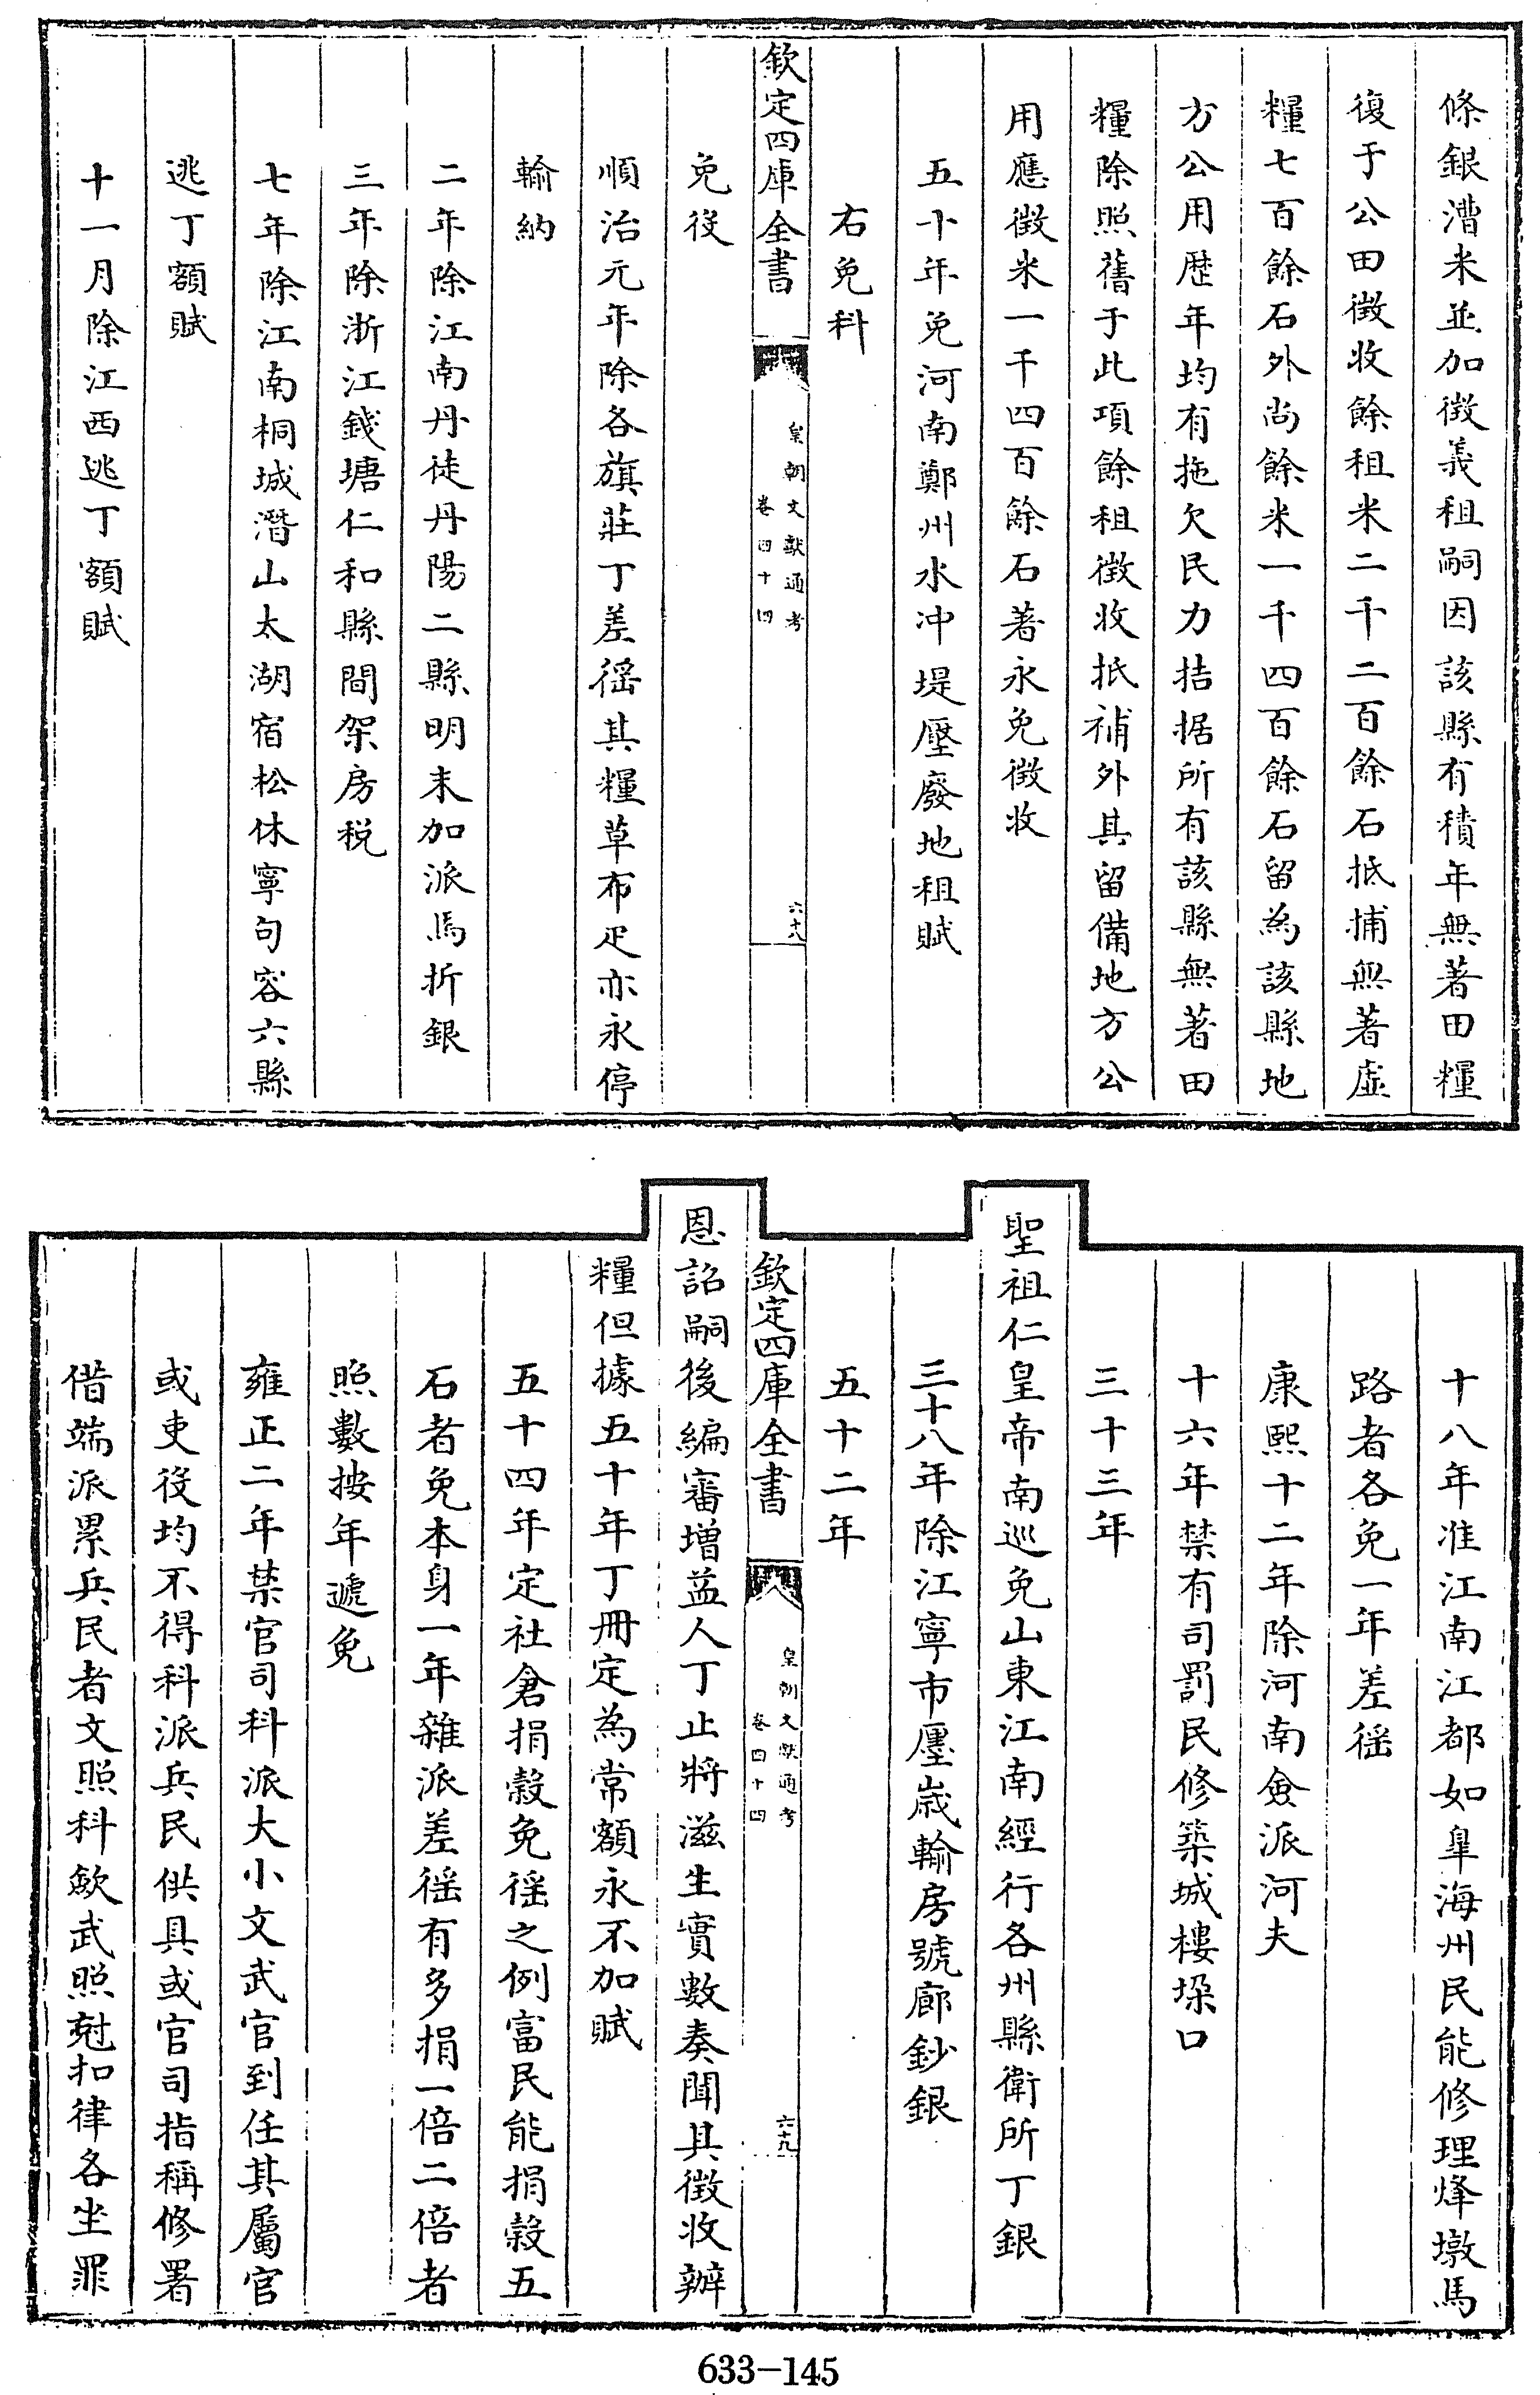 條銀漕米並加徴義租嗣因該縣有積年無著田糧
復于公田徴收餘租米二千二百餘石抵捕無著虚
糧七百餘石外尚餘米一千四百餘石留為該縣地
方公用歴年均有拖欠民力拮据所有該縣無著田
糧除照舊于此項餘租徴收抵補外其留備地方公
用應徴米一千四百餘石著永免徴收
五十年免河南鄭州水冲堤壓廢地租賦
右免科
欽定四庫全書
皇朝文獻通考
卷四十四
六十八
免役
順治元年除各旗莊丁差徭其糧草布疋亦永停
輸納
二年除江南丹徒丹陽二縣明末加派馬折銀
三年除浙江錢塘仁和縣間架房税
七年除江南桐城潛山太湖宿松休寧句容六縣
逃丁額賦
十一月除江西逃丁額賦
十八年准江南江都如臯海州民能修理烽墩馬
路者各免一年差徭
康熙十二年除河南僉派河夫
十六年禁有司罰民修築城樓垜口
三十三年
聖祖仁皇帝南巡免山東江南經行各州縣衛所丁銀
三十八年除江寧市廛歳輸房號廊鈔銀
五十二年
欽定四庫全書
皇朝文獻通考
卷四十四
六十九
恩詔嗣後編審增益人丁止將滋生實數奏聞其徴收辦
糧但據五十年丁冊定為常額永不加賦
五十四年定社倉捐穀免徭之例富民能捐穀五
石者免本身一年雜派差徭有多捐一倍二倍者
照數按年遞免
雍正二年禁官司科派大小文武官到任其屬官
或吏役均不得科派兵民供具或官司指稱修署
借端派累兵民者文照科歛武照尅扣律各坐罪
633-145